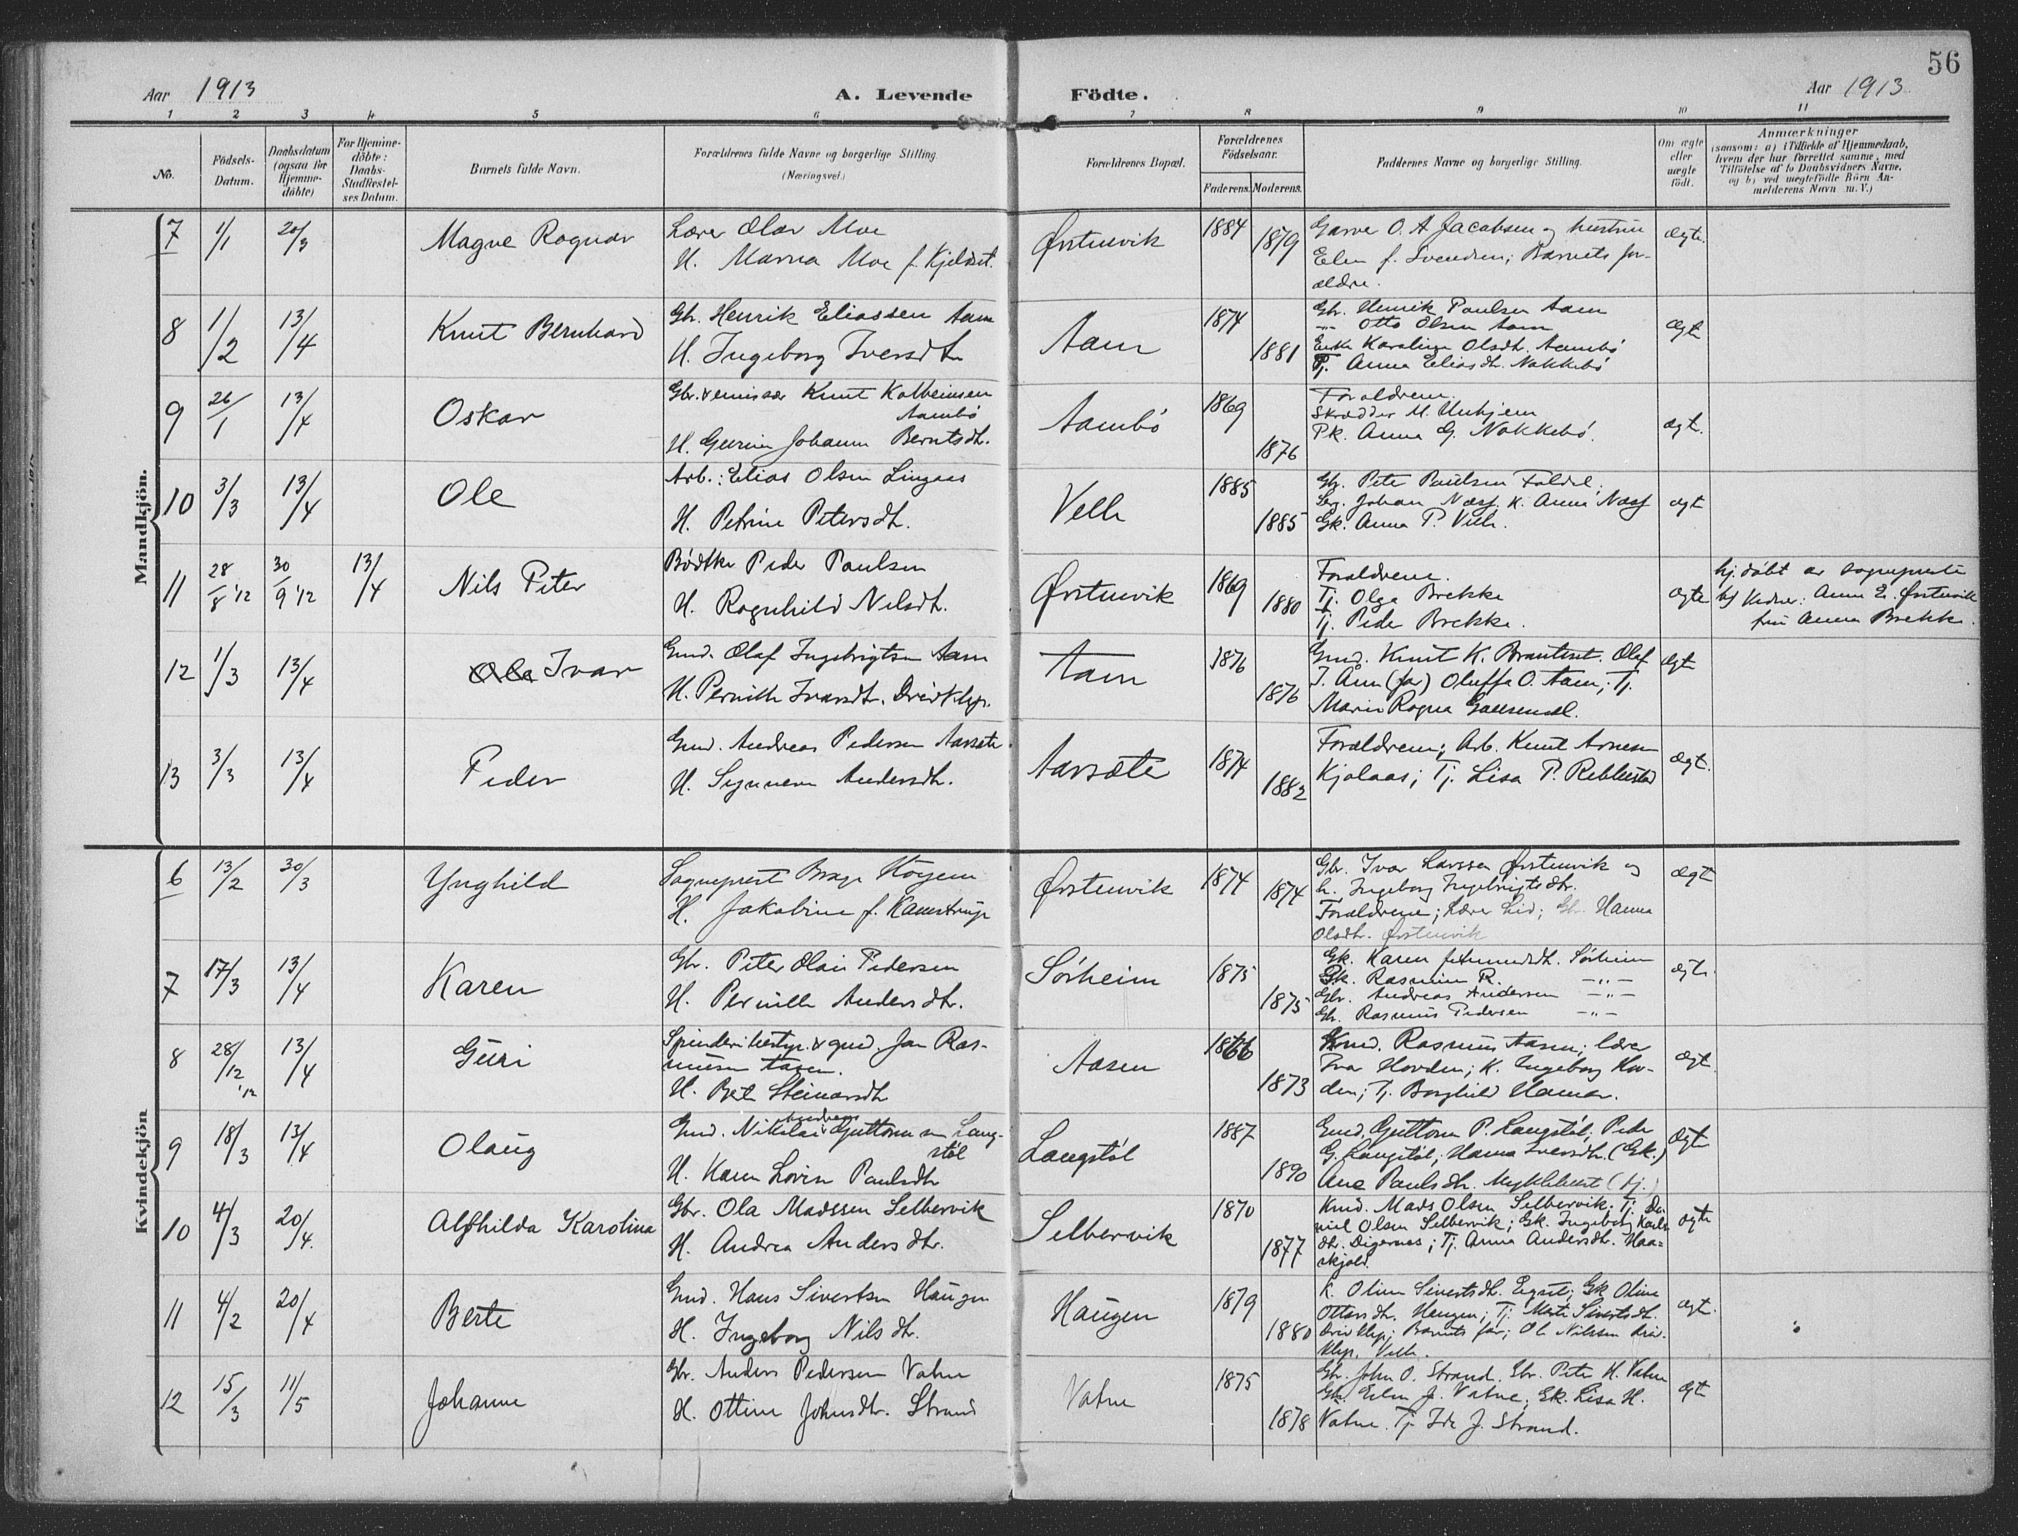 56
Aar 1913
A. Levende Födte.
Aar 1913
1 2 3 4 5 6 7 8 9 10 11
No.
Födsels-Datum.
Daabsdatum (ogsaa for Hjemme-döbte)
For Hjemme-döbte: Daabs-Stadfæstel-ses Datum.
Barnets fulde Navn.
Forældrenes fulde Navne og borgerlige Stilling.
(Næringsvei.)
Forældrenes Bopæl.
Forældrenes Födselsaar.
Faderens. Moderens.
Faddernes Navne og borgerlige Stilling.
Om ægte eller uægte født.
Anmærkninger
(saasom: a) i Tilfælde af Hjemmedaab, hvem der har forrettet samme, med Tilföielse af to Daabsvidners Navne, og b) ved uægtefödte Börn An-melderens Navn m. V.)
Mandkjön.
7 1/1 20/3 Magne Ragnar
Lærer Olav Moe
H. Marna Moe f. Kjeldset.
Ørstenvik 1884 1879
Garver O. A. Jacobsen og hustru
Elen f. Svendsen; Barnets for-
ældre.
Ægte
8 1/2 13/4 Knut Bernhard
Gbr. Henrik Eliassen Aam
H. Ingeborg Iversdtr
Aam 1874 1881
Gbr. Henrik Paulsen Aam
-"- Otto Olsen Aam
Enke Karoline Olsdtr. Aambø
Tj. Anna Eliasdtr. Nakkebø
Ægte
9 26/1 13/4 Oskar
Gbr. & emissær Knut Kolbeinsen
Aambø
H. Gurine Johanne Berntsdtr.
Aambø 1869 1876
Forældrene.
Skrædder M. Unhjem
Pk. Anna G. Nakkebø.
Ægt.
10 3/3 13/4 Ole
Arb.: Elias Olsen Lingaas
H. Petrine Petersdtr.
Velle 1885 1885
Gbr. Peter Paulsen
Johan Næss. K. Anna Næss
Gk. Anna P. Velle.
Ægt
11 28/8 '12 30/9 '12 13/4 Nils Peter
Bødtker Peder Paulsen
H. Ragnhild Nilsdtr.
Ørstenvik 1869 1880
Forældrene.
Tj. Olga Brekke
Tj. Peder Brekke.
Ægte
hj. døbt av sogneprest
Vidner: Anna E. Ørstenvik
fru Anna Brekke.
12 1/3 13/4 Ole Ivar
Gmd. Olaf Ingebrigtsen Aam
H. Pernille Ivarsdtr.
Aam 1876 1876
Gmd. Knut K. Brauteset. Olaf
I. Aam (far) Oluffa O. Aam; Tj.
Marie Ragna
Ægt
13 3/3 13/4 Peder
Gmd. Andreas Pedersen Aarsæte
H. Synneva Andersdtr.
Aarsæte 1874 1882
Forældrene; Arb. Knut Arnesen
Kjølaas; Tj. Lisa P. Rebbestad
Ægt.
Kvindekjön
6 13/2 30/3 Ynghild
Sogneprest Brage Høyem
H. Jakobine f. Kamstrup
Ørstenvik 1874 1874
Gbr. Ivar Larssen Ørstenvik og
h. Ingeborg Ingebrigtsdtr.
Forældrene; Lærer Lid; Gbr. Hanna
Olsdtr. Ørstenvik
Ægt
7 17/3 13/4 Karen
Gbr. Peter Olai Pedersen
H. Pernille Andersdtr.
Sørheim 1875 1875
Gk. Karen Sørheim
Gk. Rasmine R. -"-
Gbr. Andreas Andersen -"-
Gbr. Rasmus Pedersen -"-
Ægt.
8 28/12 '12 13/4 Guri
Spinderibestyr. & gmd. Jon Ras-
mussen Aasen.
H. Berte Steinarsdtr
Aasen 1866 1873
Gmd. Rasmus Aasen; lærer
Ivar Hovden; K. Ingeborg Hov-
den; Tj. Borghild Hamar.
Ægt.
9 18/3 13/4 Olaug
Gmd. Nikolai Andreas Guttormsen Lang-
støl
H. Karen Lovise Paulsdtr
Langstøl 1887 1890
Gmd. Guttorm P. Langstøl; Peder
G. Langstøl; Hanna Iversdtr. (Gk.)
Ane Paulsdtr. Myklebust (tj.)
Ægt
10 4/3 20/4. Alfhilda Karolina
Gbr. Ola Madssen Selbervik
H. Andrea Andersdtr.
Selbervik 1870 1877
Kmd. Mads Olsen Selbervik; Tj. Da-
niel Olsen Selbervik; Gk. Ingeborg Karls
dtr. Digernes; Tj. Anna Andersdtr. Haa-
skjold.
Ægte
11 4/2 20/4 Berte
Gmd. Hans Sivertsen Haugen
H. Ingeborg Nilsdtr.
Haugen 1879 1880
K. Oline Sivertsdtr. Egset; Gk Oline
Ottarsdtr. Haugen; Tj. Sivertsdtr.
Barnets far; Ole Nilssen
Velle.
Ægt.
12 15/3 11/5 Johanne
Gbr. Anders Pedersen Vatne
H. Ottine Johnsdtr. Strand
Vatne 1875 1878
Gbr. John O. Strand. Gbr. Peter H. Vatne
Gk. Elen J. Vatne; Gk. Lisa H.
Vatne. Tj. Ida J. Strand.
Ægt